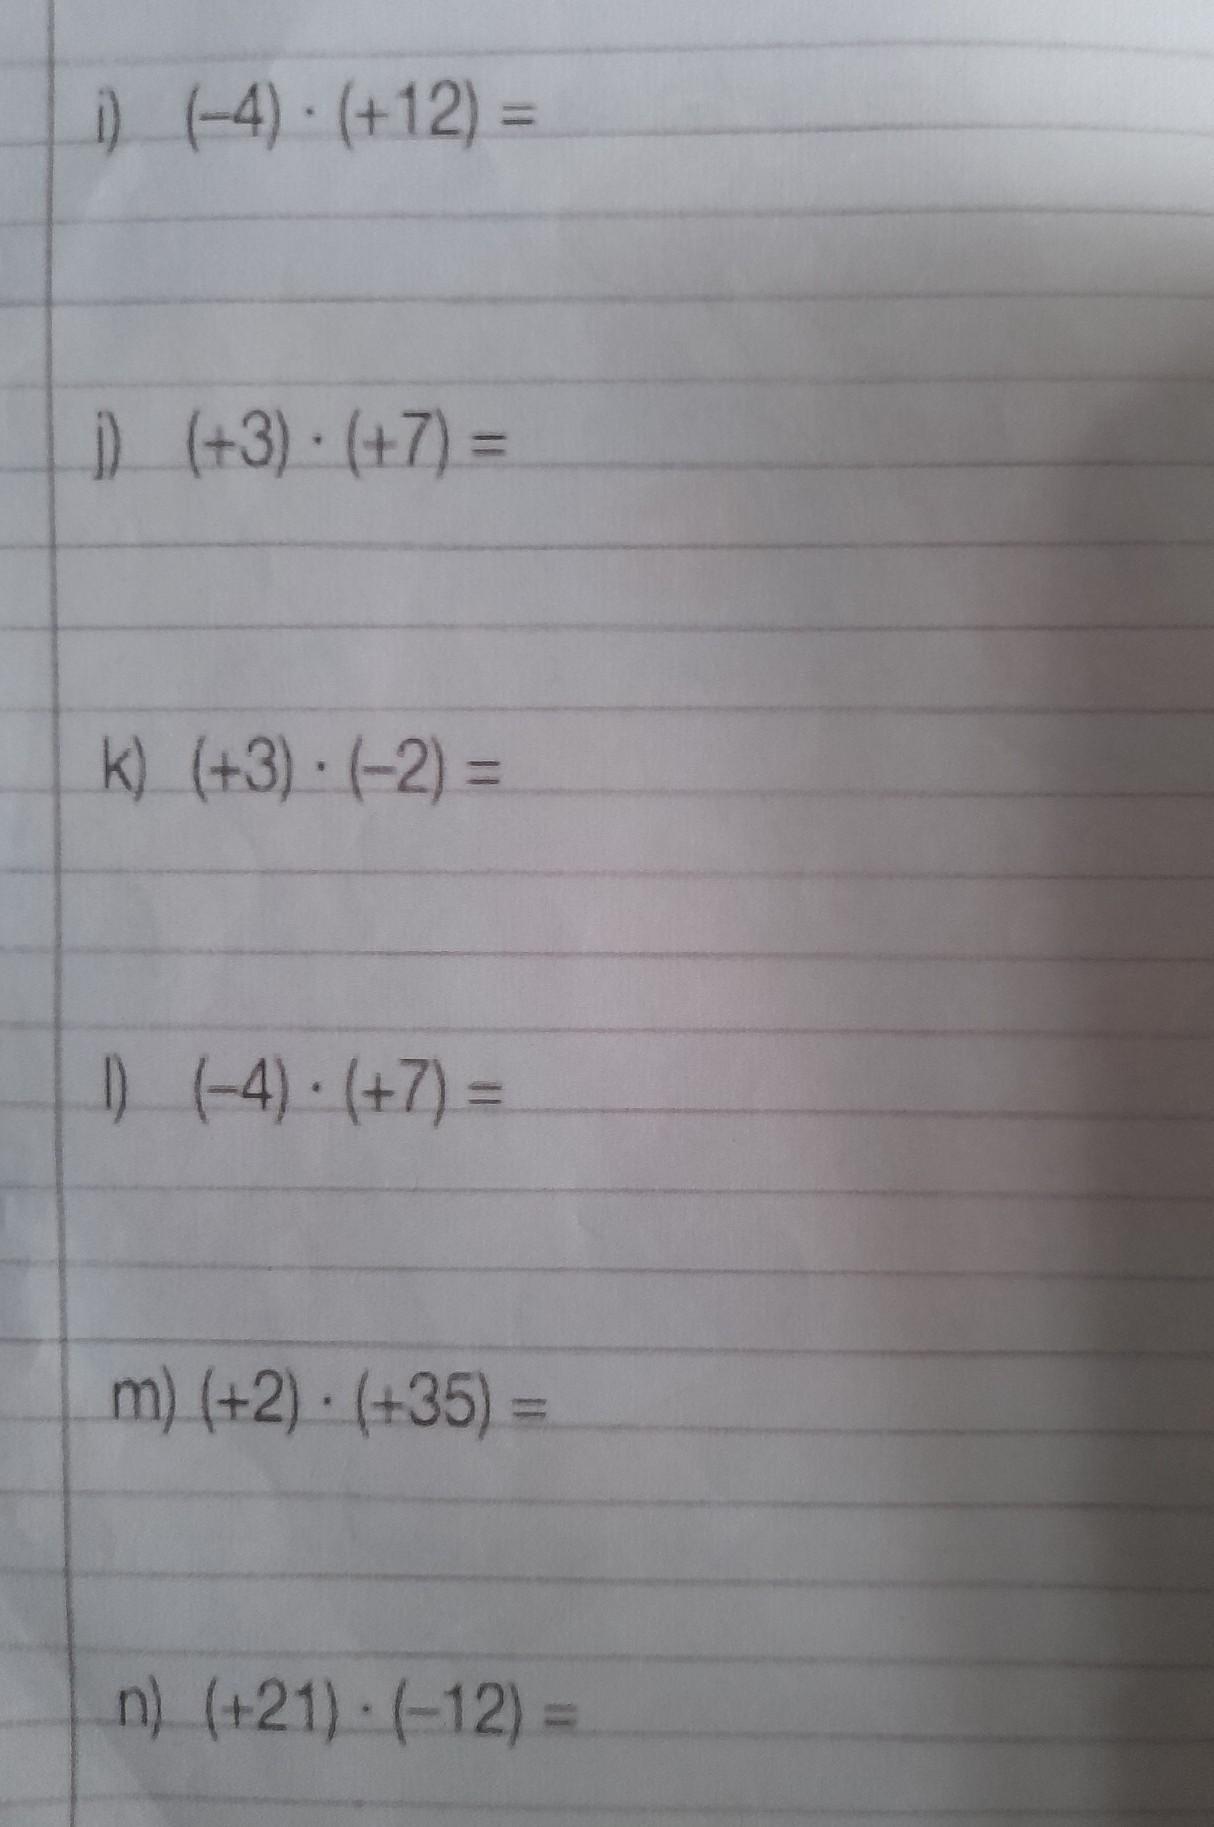 i) (–4) · (+12) =
j) (+3) · (+7) =
k) (+3) · (–2) =
l) (–4) · (+7) =
m) (+2) · (+35) =
n) (+21) · (–12) =